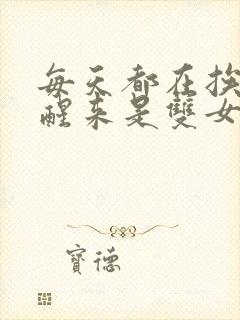 每天都在挨
醒来是雙女
寶德